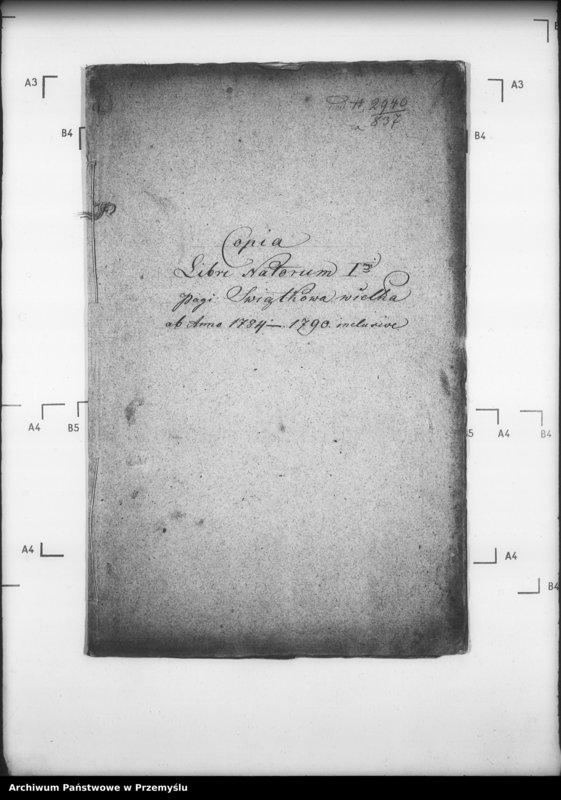 # 2940
837
Copia
Libri Natorum I
pagi Swiątkowa wielka
ab Anno 1784 – 1790. inclusive
A3
A3
B4
B4
A4
B5
A4
B4
A4
A4
B4
Archiwum Państwowe w Przemyślu